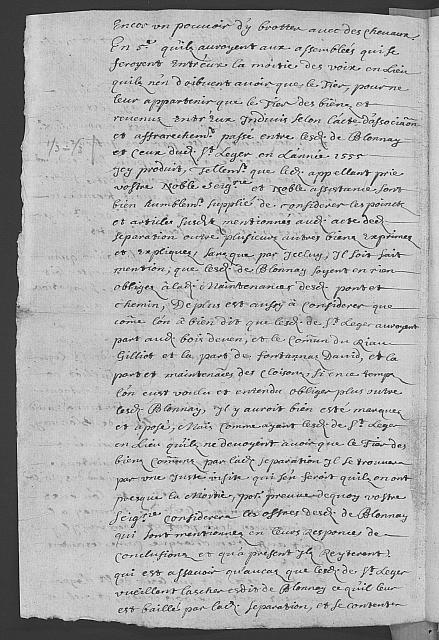 Encor un pouvoir d'y brotter avec des chevaux
En 5.e quilz auroyent aux assemblées qui se
feroyent Entreux la moitie des voix en Lieu
quilz n'en doibuent avoir que le Tier, pour ne
leur appartenir que le Tier des biens et
revenus Entr'eux Indivis selon l'acte d'association
et affranchem.t passe entre lesd. de Blonnay
et Ceux dud. S.t Leger en L'année 1555
Icy produit, Tellem.t que led. appellant prie
vostre Noble Seig.rie et Noble assistance sont
bien humblem.t supplié de considerer les poincts
et articles susd.t mentionnés aud. acte de
separation outre plusieurs autres biens exprimes
et expliques, sans que par Iceluy, Il soit fait
mention, que lesd. de Blonnay soyent en rien
obligez à lad. Maintenance desd. pont et
chemin, De plus est aussy à considerer que
come l'on à bien dit que lesd. de S.t Leger auroyent
part aud. bois deven, et le Comun du Riau
Gilliot et la part de fontannas David, et la
port et maintenances des cloisons, Si en ce temps
l'on eust voulu et entendu obliger plus outre
lesd. Blonnay, Il y auroit bien esté marqué
et aposé, Mais comme ayant lesd. de S.t Leger
en Lieu quilz ne devoyent avoir que le Tier des
biens Communs par lad. separation Il se trouve
par une Juste visite qui s'en feroit quilz en ont
presque la Moitie, po.r preuve dequoy vostre
Seig.rie considerera les offres desd. de Blonnay
qui sont mentionnez en leurs Responces de
conclusions et qu'a present Ils Reyterent
qui est assavoir qu'aucas que lesd. de S.t Leger
vueillent lascher esdit de Blonnay ce quil leur
est baillé par lad. separation, et se contenter